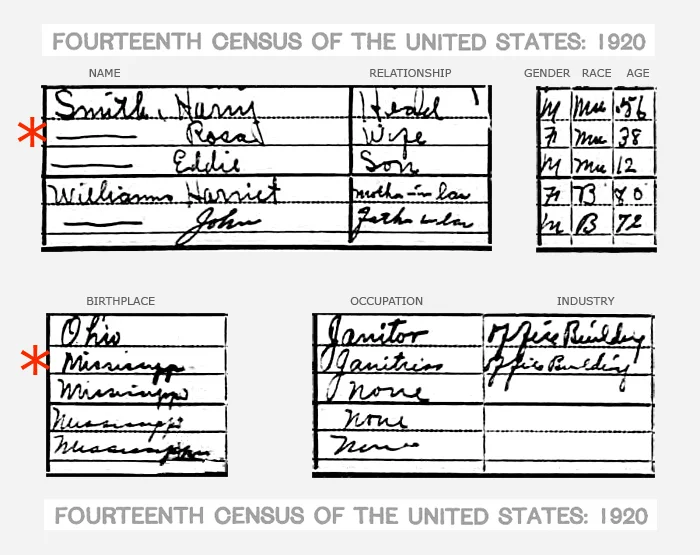 FOURTEENTH CENSUS OF THE UNITED STATES: 1920
NAME RELATIONSHIP GENDER RACE AGE
Smith, Harry Head M Mu 56
* —— Rosa Wife F Mu 38
—— Eddie Son M Mu 12
Williams Harriet mother-in law F B 80
—— John father in law M B 72
BIRTHPLACE OCCUPATION INDUSTRY
Ohio Janitor Office Building
* Mississipp Janitriss Office Building
Mississippi None
Mississippi None
Mississippi None
FOURTEENTH CENSUS OF THE UNITED STATES: 1920